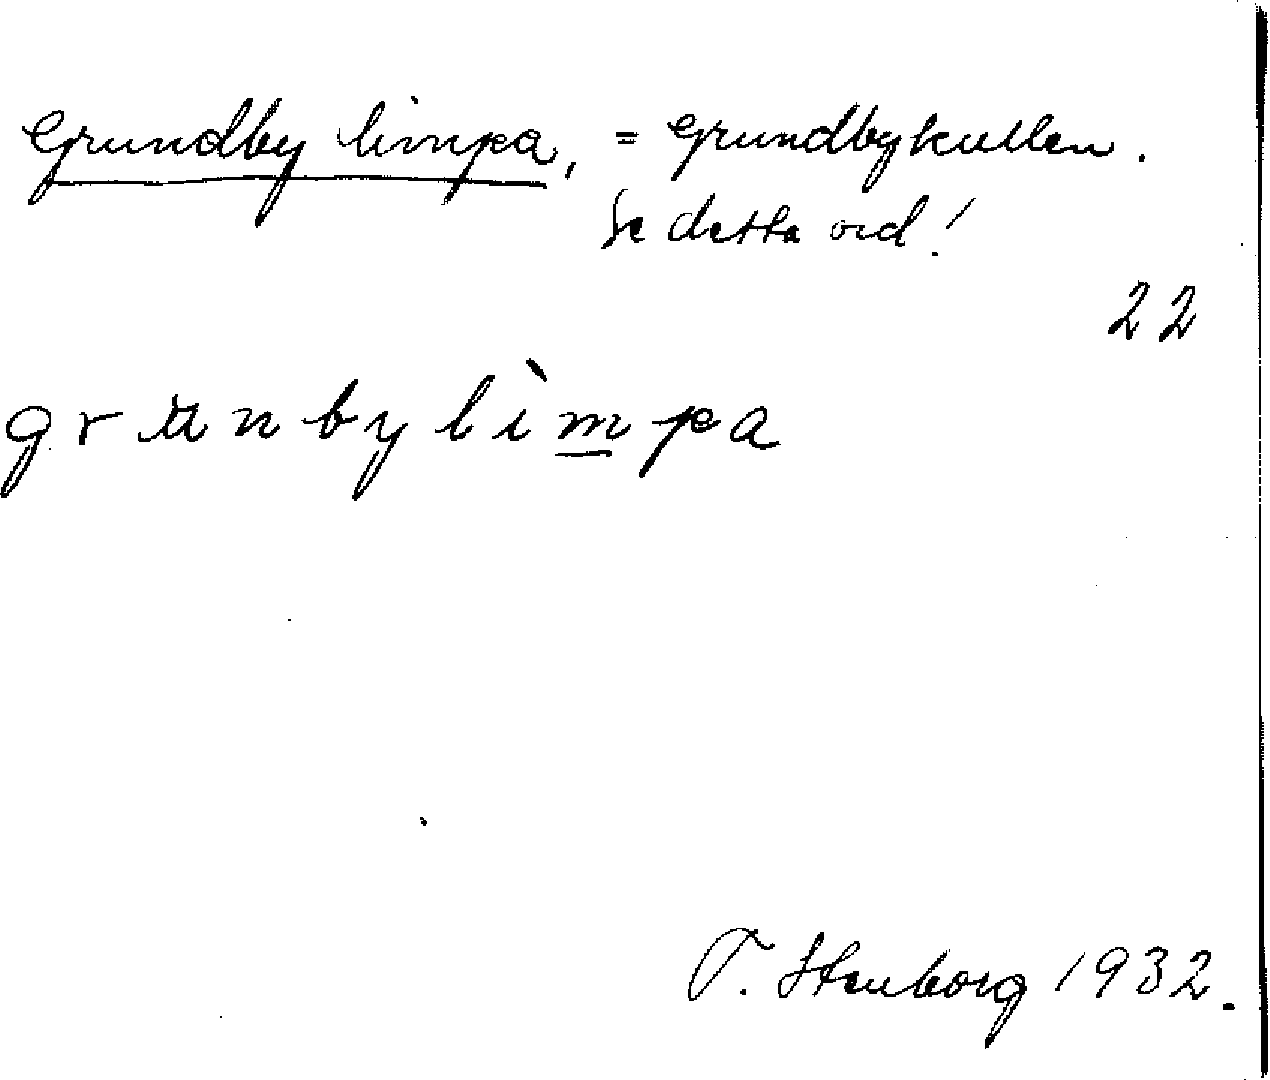 Grundby limpa, = Grundbykullen.
Se detta ord!
22
grunbylìmpa
T. Stenborg 1932.